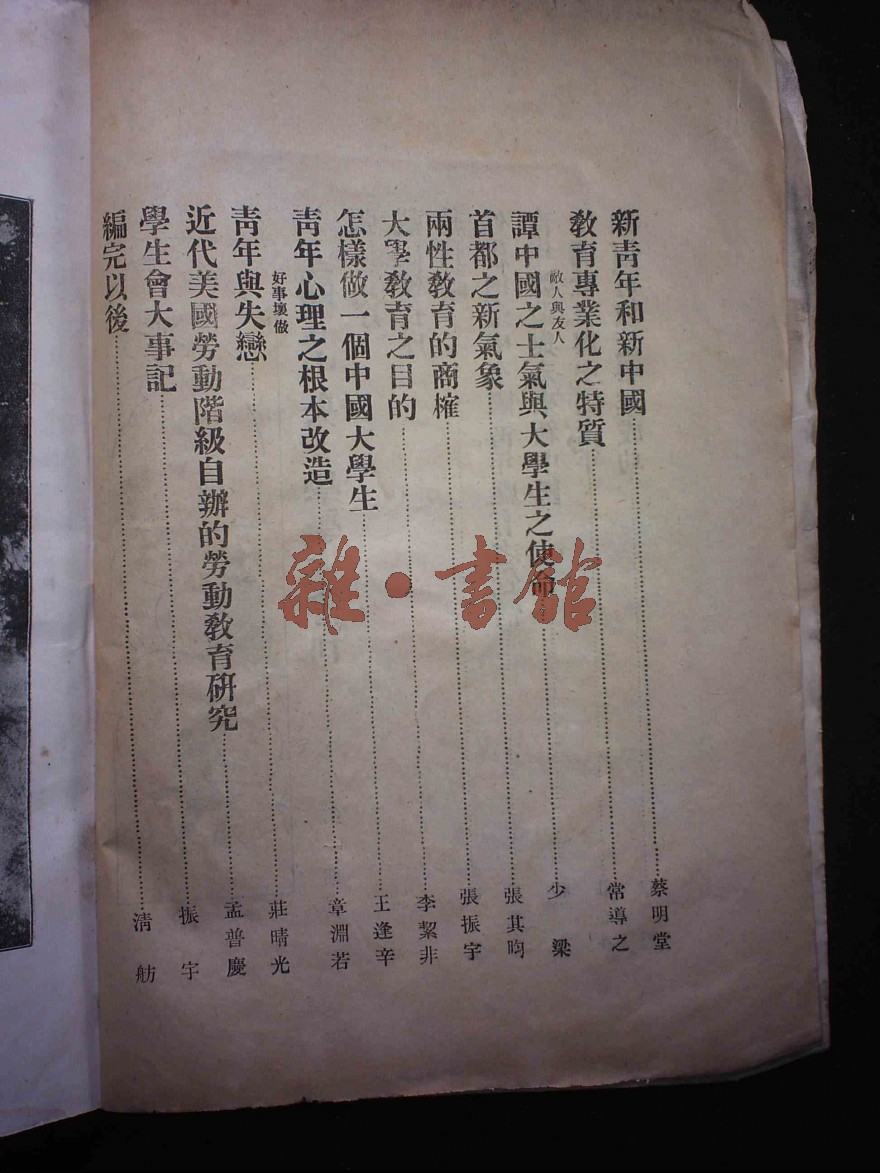 新青年和新中國……………蔡明堂
教育專業化之特質……………常導之
敵人與友人
譚中國之士氣與大學生之使命……………少梁
首都之新氣象……………張其昀
兩性教育的商榷……………張振宇
大學教育之目的……………李絜非
怎樣做一個中國大學生……………王逢辛
青年心理之根本改造……………章淵若
好事壞做
青年與失戀……………莊晴光
近代美國勞動階級自辦的勞動教育研究……………孟普慶
學生會大事記……………振宇
編完以後……………清舫
雜·書館